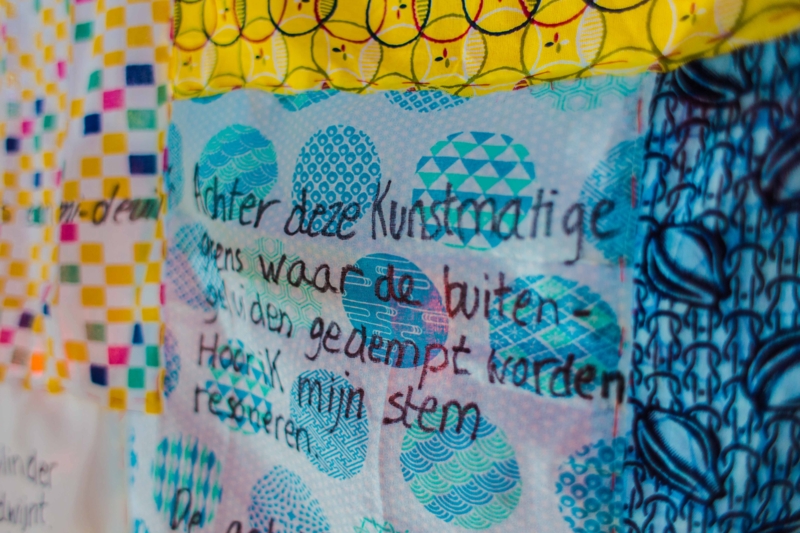 mi-deuil
Achter deze Kunstmatige
grens waar de buiten-
geluiden gedempt worden
Hoor ik mijn stem
resoneren.
De